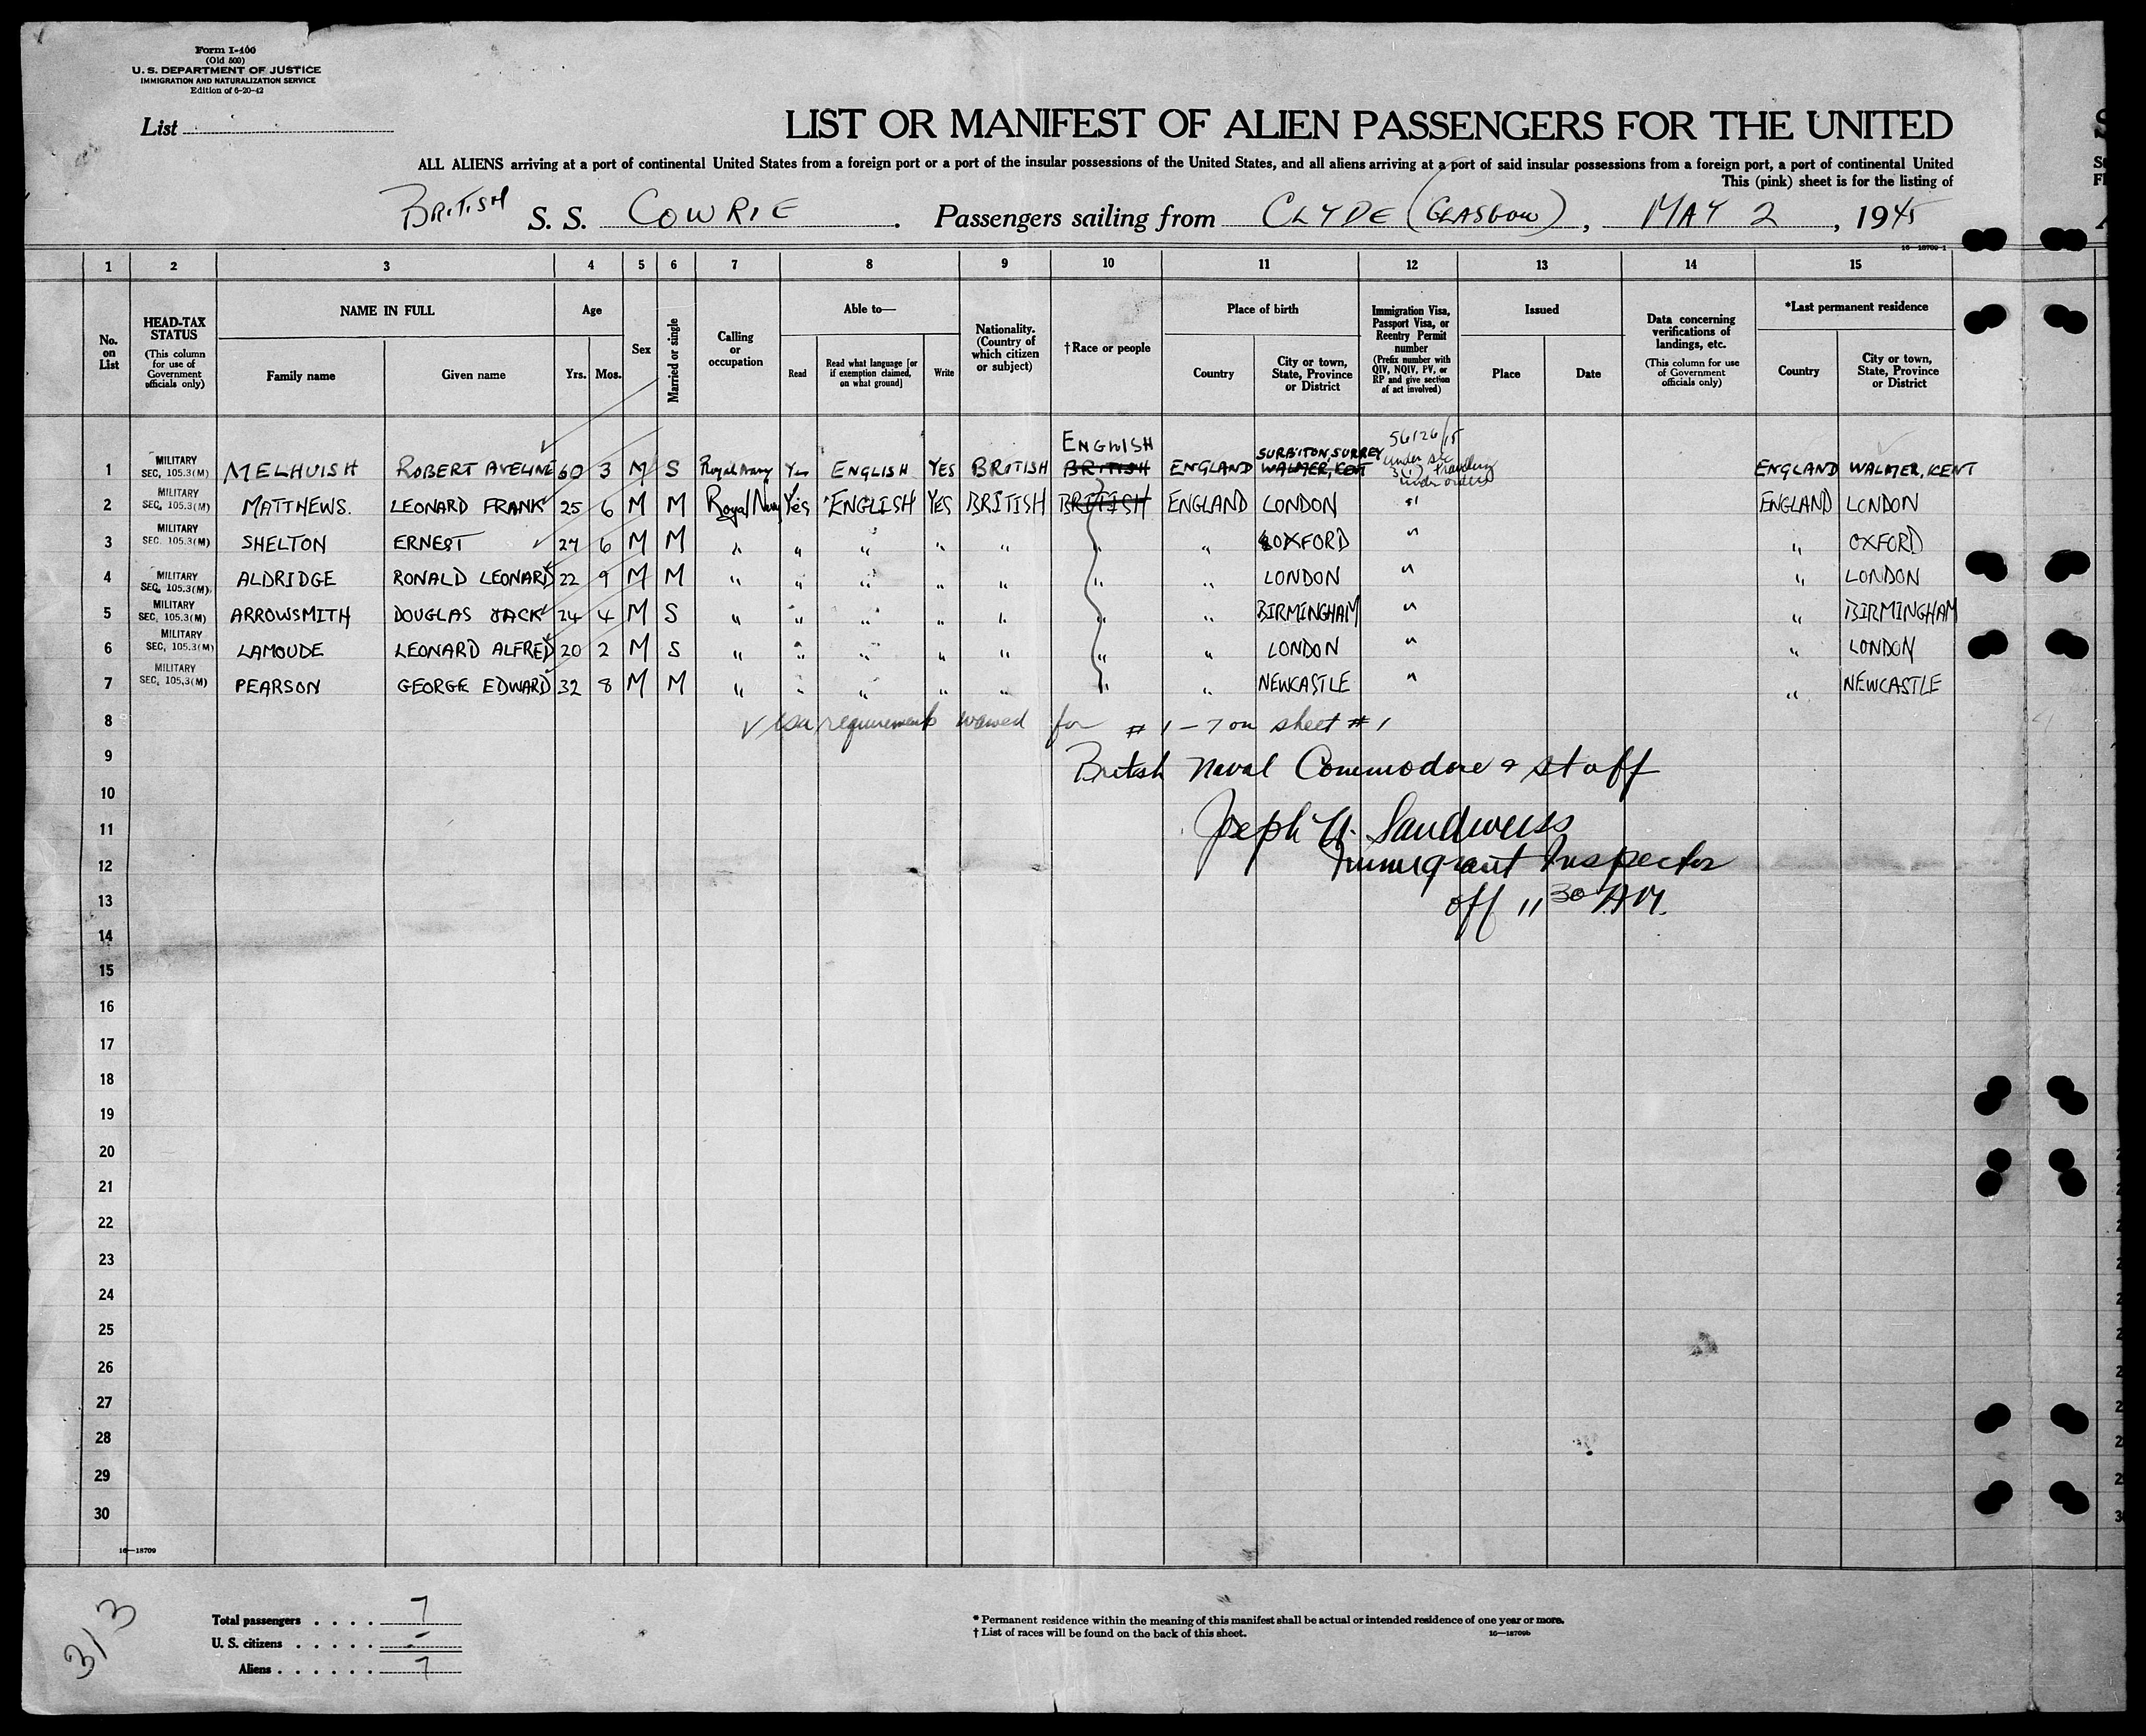 Form I-400
(Old 500)
U. S. DEPARTMENT OF JUSTICE
IMMIGRATION AND NATURALIZATION SERVICE
Edition of 6-20-42
List
LIST OR MANIFEST OF ALIEN PASSENGERS FOR THE UNITED
ALL ALIENS arriving at a port of continental United States from a foreign port or a port of the insular possessions of the United States, and all aliens arriving at a port of said insular possessions from a foreign port, a port of continental United
This (pink) sheet is for the listing of
BRITISH S. S. COWRIE . Passengers sailing from CLYDE (GLASGOW) , MAY 2 , 1945
16—18709-1
1 2 3 4 5 6 7 8 9 10 11 12 13 14 15
No. on List
HEAD-TAX STATUS (This column for use of Government officials only)
NAME IN FULL
Family name
Given name
Age
Yrs. Mos.
Sex
Married or single
Calling or occupation
Able to—
Read
Read what language [or if exemption claimed, on what ground]
Write
Nationality. (Country of which citizen or subject)
†Race or people
Place of birth
Country
City or town, State, Province or District
Immigration Visa, Passport Visa, or Reentry Permit number (Prefix number with QIV, NQIV, PV, or RP and give section of act involved)
Issued
Place
Date
Data concerning verifications of landings, etc. (This column for use of Government officials only)
*Last permanent residence
Country
City or town, State, Province or District
ENGLISH SURBITON, SURREY 56126/15
1 MILITARY SEC. 105.3(M) MELHUISH ROBERT AVELINE 60 3 M S Royal Navy Yes ENGLISH YES BRITISH BRITISH ENGLAND WALMER, KENT under sec 3(1) travelling under orders ENGLAND WALMER, KENT
2 MILITARY SEC. 105.3(M) MATTHEWS. LEONARD FRANK 25 6 M M Royal Navy Yes ENGLISH YES BRITISH BRITISH ENGLAND LONDON " ENGLAND LONDON
3 MILITARY SEC. 105.3(M) SHELTON ERNEST 27 6 M M " " " " " " " OXFORD " " OXFORD
4 MILITARY SEC. 105.3(M) ALDRIDGE RONALD LEONARD 22 9 M M " " " " " " " LONDON " " LONDON
5 MILITARY SEC. 105.3(M) ARROWSMITH DOUGLAS JACK 24 4 M S " " " " " " BIRMINGHAM " " BIRMINGHAM
6 MILITARY SEC. 105.3(M) LAMOUDE LEONARD ALFRED 20 2 M S " " " " " " " LONDON " " LONDON
7 MILITARY SEC. 105.3(M) PEARSON GEORGE EDWARD 32 8 M M " " " " " " " NEWCASTLE " " NEWCASTLE
8 Visa requirements waived for # 1 - 7 on sheet # 1
9 British Naval Commodore & staff
10
11 Joseph H. Sandweiss
12 Immigrant Inspector
13 off 11 30 A.M.
14
15
16
17
18
19
20
21
22
23
24
25
26
27
28
29
30
16—18709
313
Total passengers . . . . 7
U. S. citizens . . . . . -
Aliens . . . . . . 7
* Permanent residence within the meaning of this manifest shall be actual or intended residence of one year or more.
† List of races will be found on the back of this sheet.
16—18709b